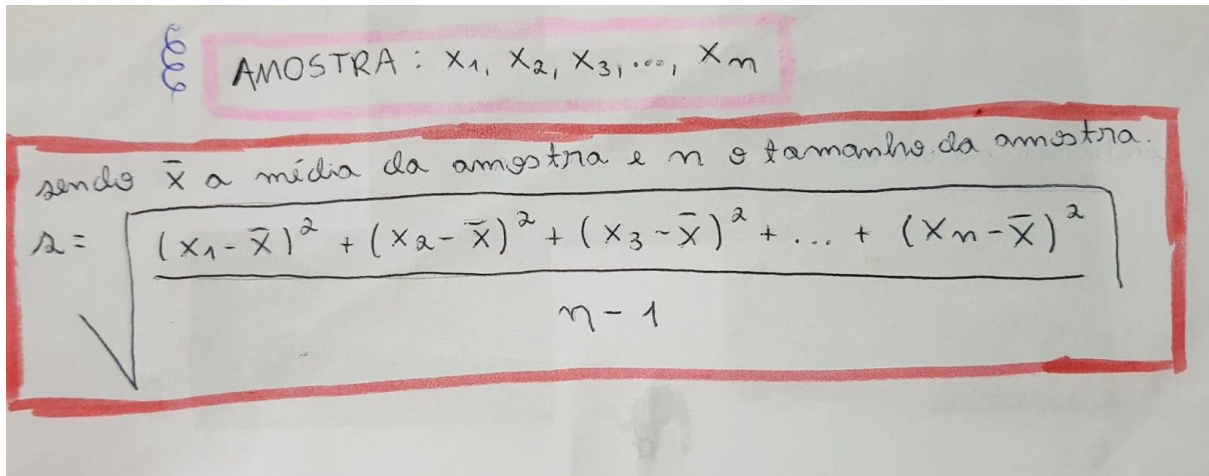 AMOSTRA: x₁, x₂, x₃, ..., xₙ
sendo x̄ a média da amostra e n o tamanho da amostra.
s = √(((x₁ - x̄)² + (x₂ - x̄)² + (x₃ - x̄)² + ... + (xₙ - x̄)²) / (n - 1))